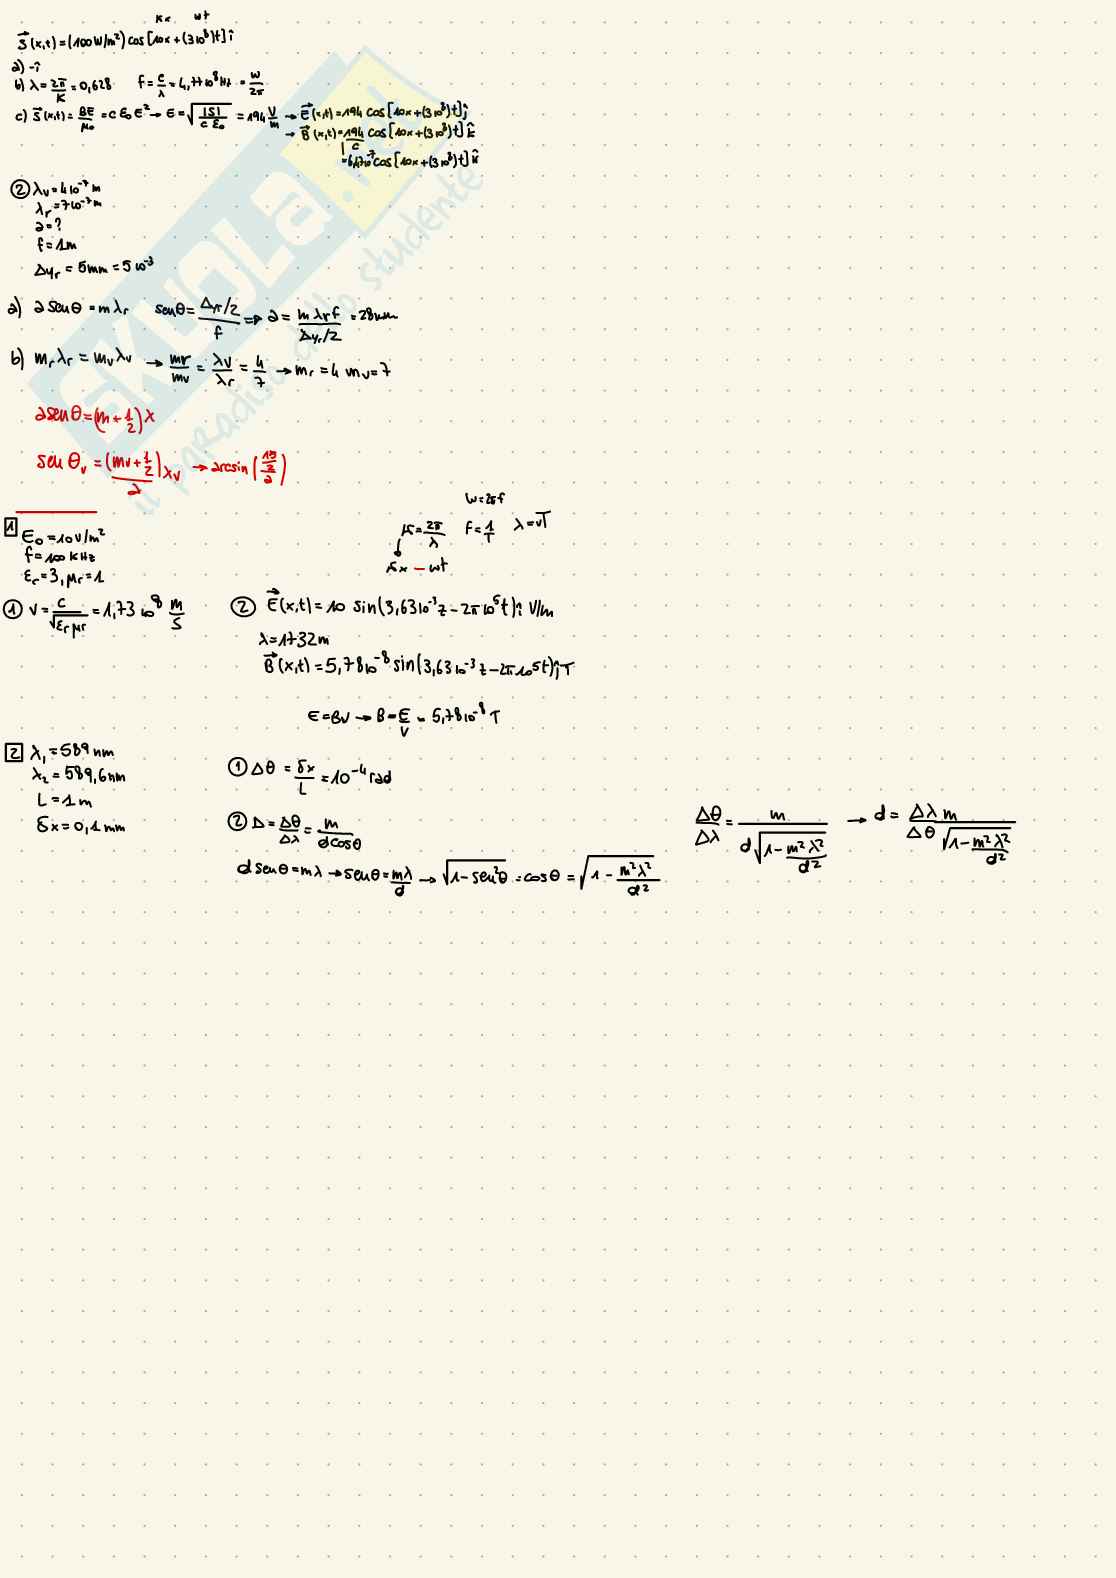 kx wt
S⃗(x,t) = (100 W/m²) cos [10x + (3 10⁸)t] î
a) -î
b) λ = 2π/K = 0,628 f = c/λ = 4,77 10⁸ Hz = w/2π
c) S⃗(x,t) = BE/μ₀ = c ε₀ E² → E = √(|S|/(c ε₀)) = 194 V/m → E⃗(x,t) = 194 cos [10x + (3 10⁸)t] ĵ
→ B⃗(x,t) = 194/c cos [10x + (3 10⁸)t] k̂
= 6,47 10⁻⁷ cos [10x + (3 10⁸)t] k̂
② λv = 4 10⁻⁷ m
λr = 7 10⁻⁷ m
a = ?
f = 1m
Δyr = 5mm = 5 10⁻³
a) a senθ = m λr senθ = (Δyr/2)/f => a = m λr f/(Δyr/2) = 28 μm
b) mr λr = mv λv → mr/mv = λv/λr = 4/7 → mr = 4 mv = 7
a senθ = (m + 1/2) λ
sen θv = (mv + 1/2)/a λv → arcsin ((15/2)/a)
w = 2πf
1 E₀ = 10 V/m²
k = 2π/λ f = 1/T λ = vT
f = 100 KHz
kx - wt
εr = 3, μr = 1
① v = c/√(εr μr) = 1,73 10⁸ m/s
② E⃗(x,t) = 10 sin(3,63 10⁻³ z - 2π 10⁵ t) î V/m
λ = 1732m
B⃗(x,t) = 5,78 10⁻⁸ sin(3,63 10⁻³ z - 2π 10⁵ t) ĵ T
E = BV → B = E/V = 5,78 10⁻⁸ T
2 λ₁ = 589 nm
λ₂ = 589,6 nm
L = 1 m
δx = 0,1 mm
① Δθ = δx/L = 10⁻⁴ rad
② D = Δθ/Δλ = m/(d cosθ)
d senθ = mλ → senθ = mλ/d → √(1 - sen²θ) = cosθ = √(1 - m²λ²/d²)
Δθ/Δλ = m/(d √(1 - m²λ²/d²)) → d = Δλ/Δθ m/√(1 - m²λ²/d²)
SKUOLA.net
il paradiso dello studente